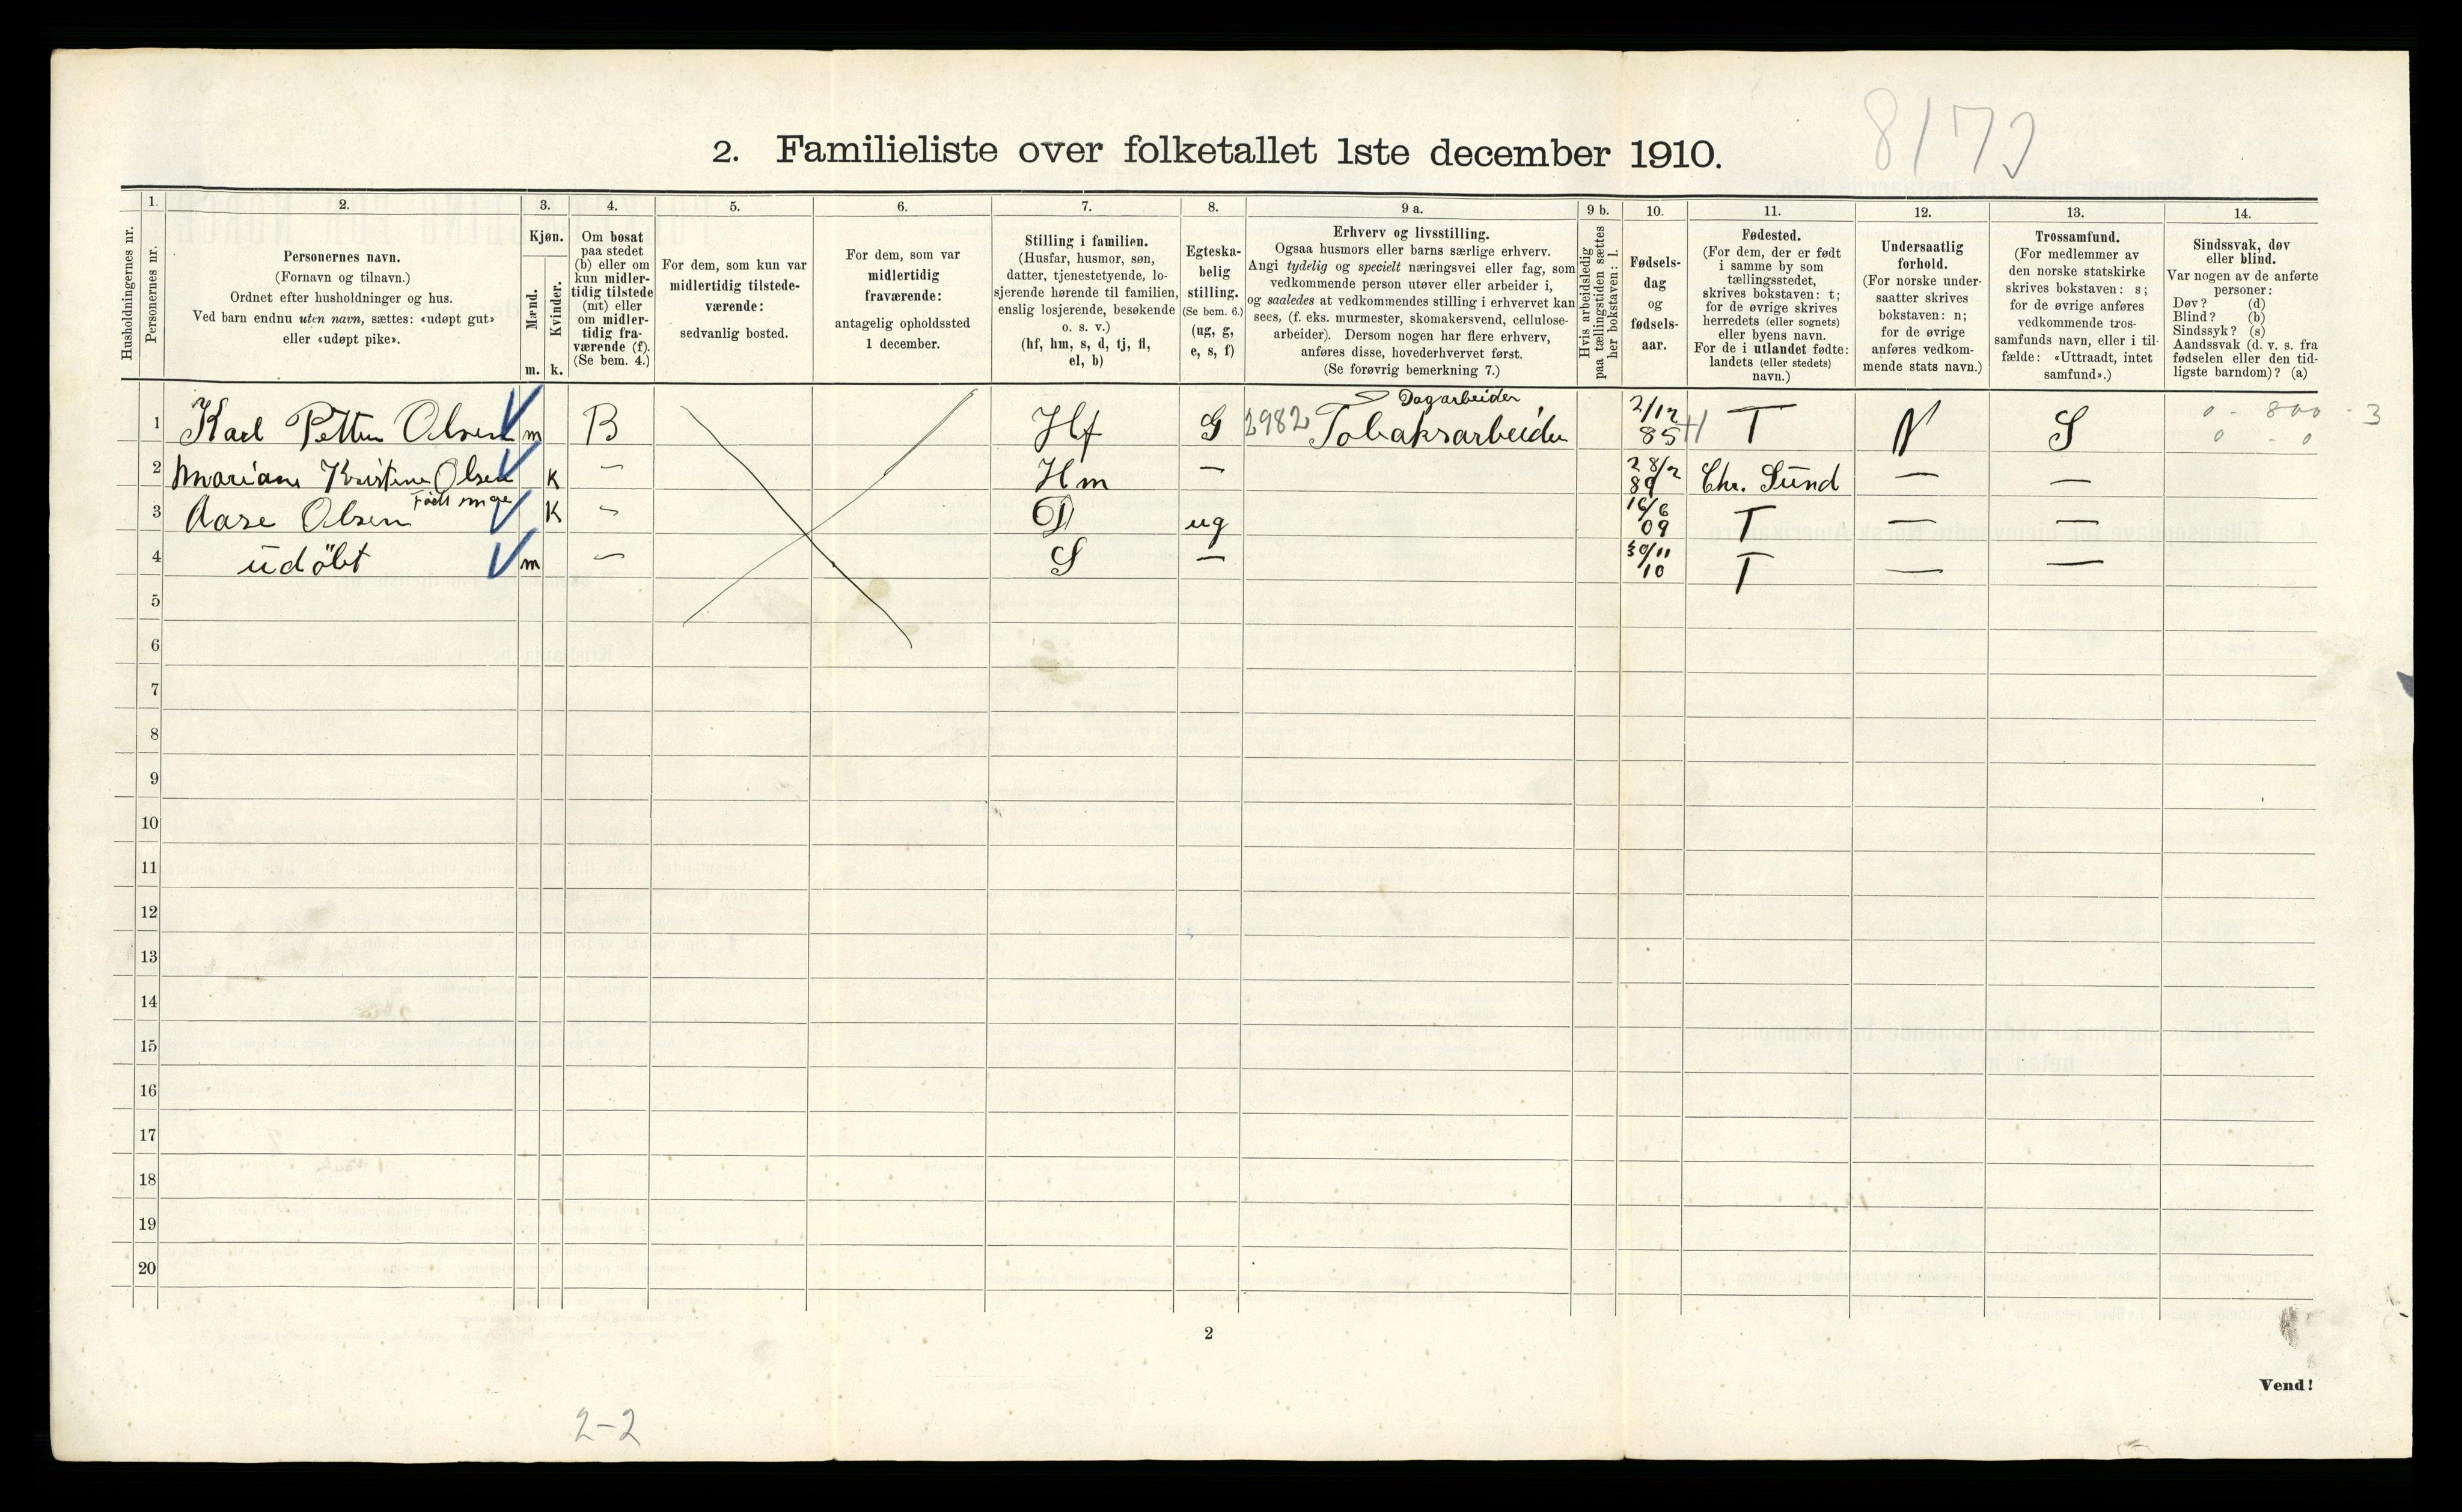 8173
2. Familieliste over folketallet 1ste december 1910.
Husholdningernes nr.
1.
Personernes nr.
2.
Personernes navn.
(Fornavn og tilnavn.)
Ordnet efter husholdninger og hus.
Ved barn endnu uten navn, sættes: «udøpt gut»
eller «udøpt pike».
3.
Kjøn.
Mænd.
Kvinder.
m. k.
4.
Om bosat
paa stedet
(b) eller om
kun midler-
tidig tilstede
(mt) eller
om midler-
tidig fra-
værende (f).
(Se bem. 4.)
5.
For dem, som kun var
midlertidig tilstede-
værende:
sedvanlig bosted.
6.
For dem, som var
midlertidig
fraværende:
antagelig opholdssted
1 december.
7.
Stilling i familien.
(Husfar, husmor, søn,
datter, tjenestetyende, lo-
sjerende hørende til familien,
enslig losjerende, besøkende
o. s. v.)
(hf, hm, s, d, tj, fl,
el, b)
8.
Egteska-
belig
stilling.
(Se bem. 6.)
(ug, g,
e, s, f)
9 a.
Erhverv og livsstilling.
Ogsaa husmors eller barns særlige erhverv.
Angi tydelig og specielt næringsvei eller fag, som
vedkommende person utøver eller arbeider i,
og saaledes at vedkommendes stilling i erhvervet kan
sees, (f. eks. murmester, skomakersvend, cellulose-
arbeider). Dersom nogen har flere erhverv,
anføres disse, hovederhvervet først.
(Se forøvrig bemerkning 7.)
9 b.
Hvis arbeidsledig
paa tællingstiden sættes
her bokstaven: l.
10.
Fødsels-
dag
og
fødsels-
aar.
11.
Fødested.
(For dem, der er født
i samme by som
tællingsstedet,
skrives bokstaven: t;
for de øvrige skrives
herredets (eller sognets)
eller byens navn.
For de i utlandet fødte:
landets (eller stedets)
navn.)
12.
Undersaatlig
forhold.
(For norske under-
saatter skrives
bokstaven: n;
for de øvrige
anføres vedkom-
mende stats navn.)
13.
Trossamfund.
(For medlemmer av
den norske statskirke
skrives bokstaven: s;
for de øvrige anføres
vedkommende tros-
samfunds navn, eller i til-
fælde: «Uttraadt, intet
samfund».)
14.
Sindssvak, døv
eller blind.
Var nogen av de anførte
personer:
Døv? (d)
Blind? (b)
Sindssyk? (s)
Aandssvak (d. v. s. fra
fødselen eller den tid-
ligste barndom)? (a)
Dagarbeider
1 Karl Petter Olsen m B Hf G 2982 Tobaksarbeider 2/12 85 T N S 0 - 800 - 3
0 - 0
2 Mariane Kristine Olsen K — Hm — 28/2 89 Chr. Sund — —
3 Aase Olsen K — D ug 16/6 09 T — —
4 udöbt m — S — 30/11 10 T — —
5
6
7
8
9
10
11
12
13
14
15
16
17
18
19
20
2
Vend!
2-2